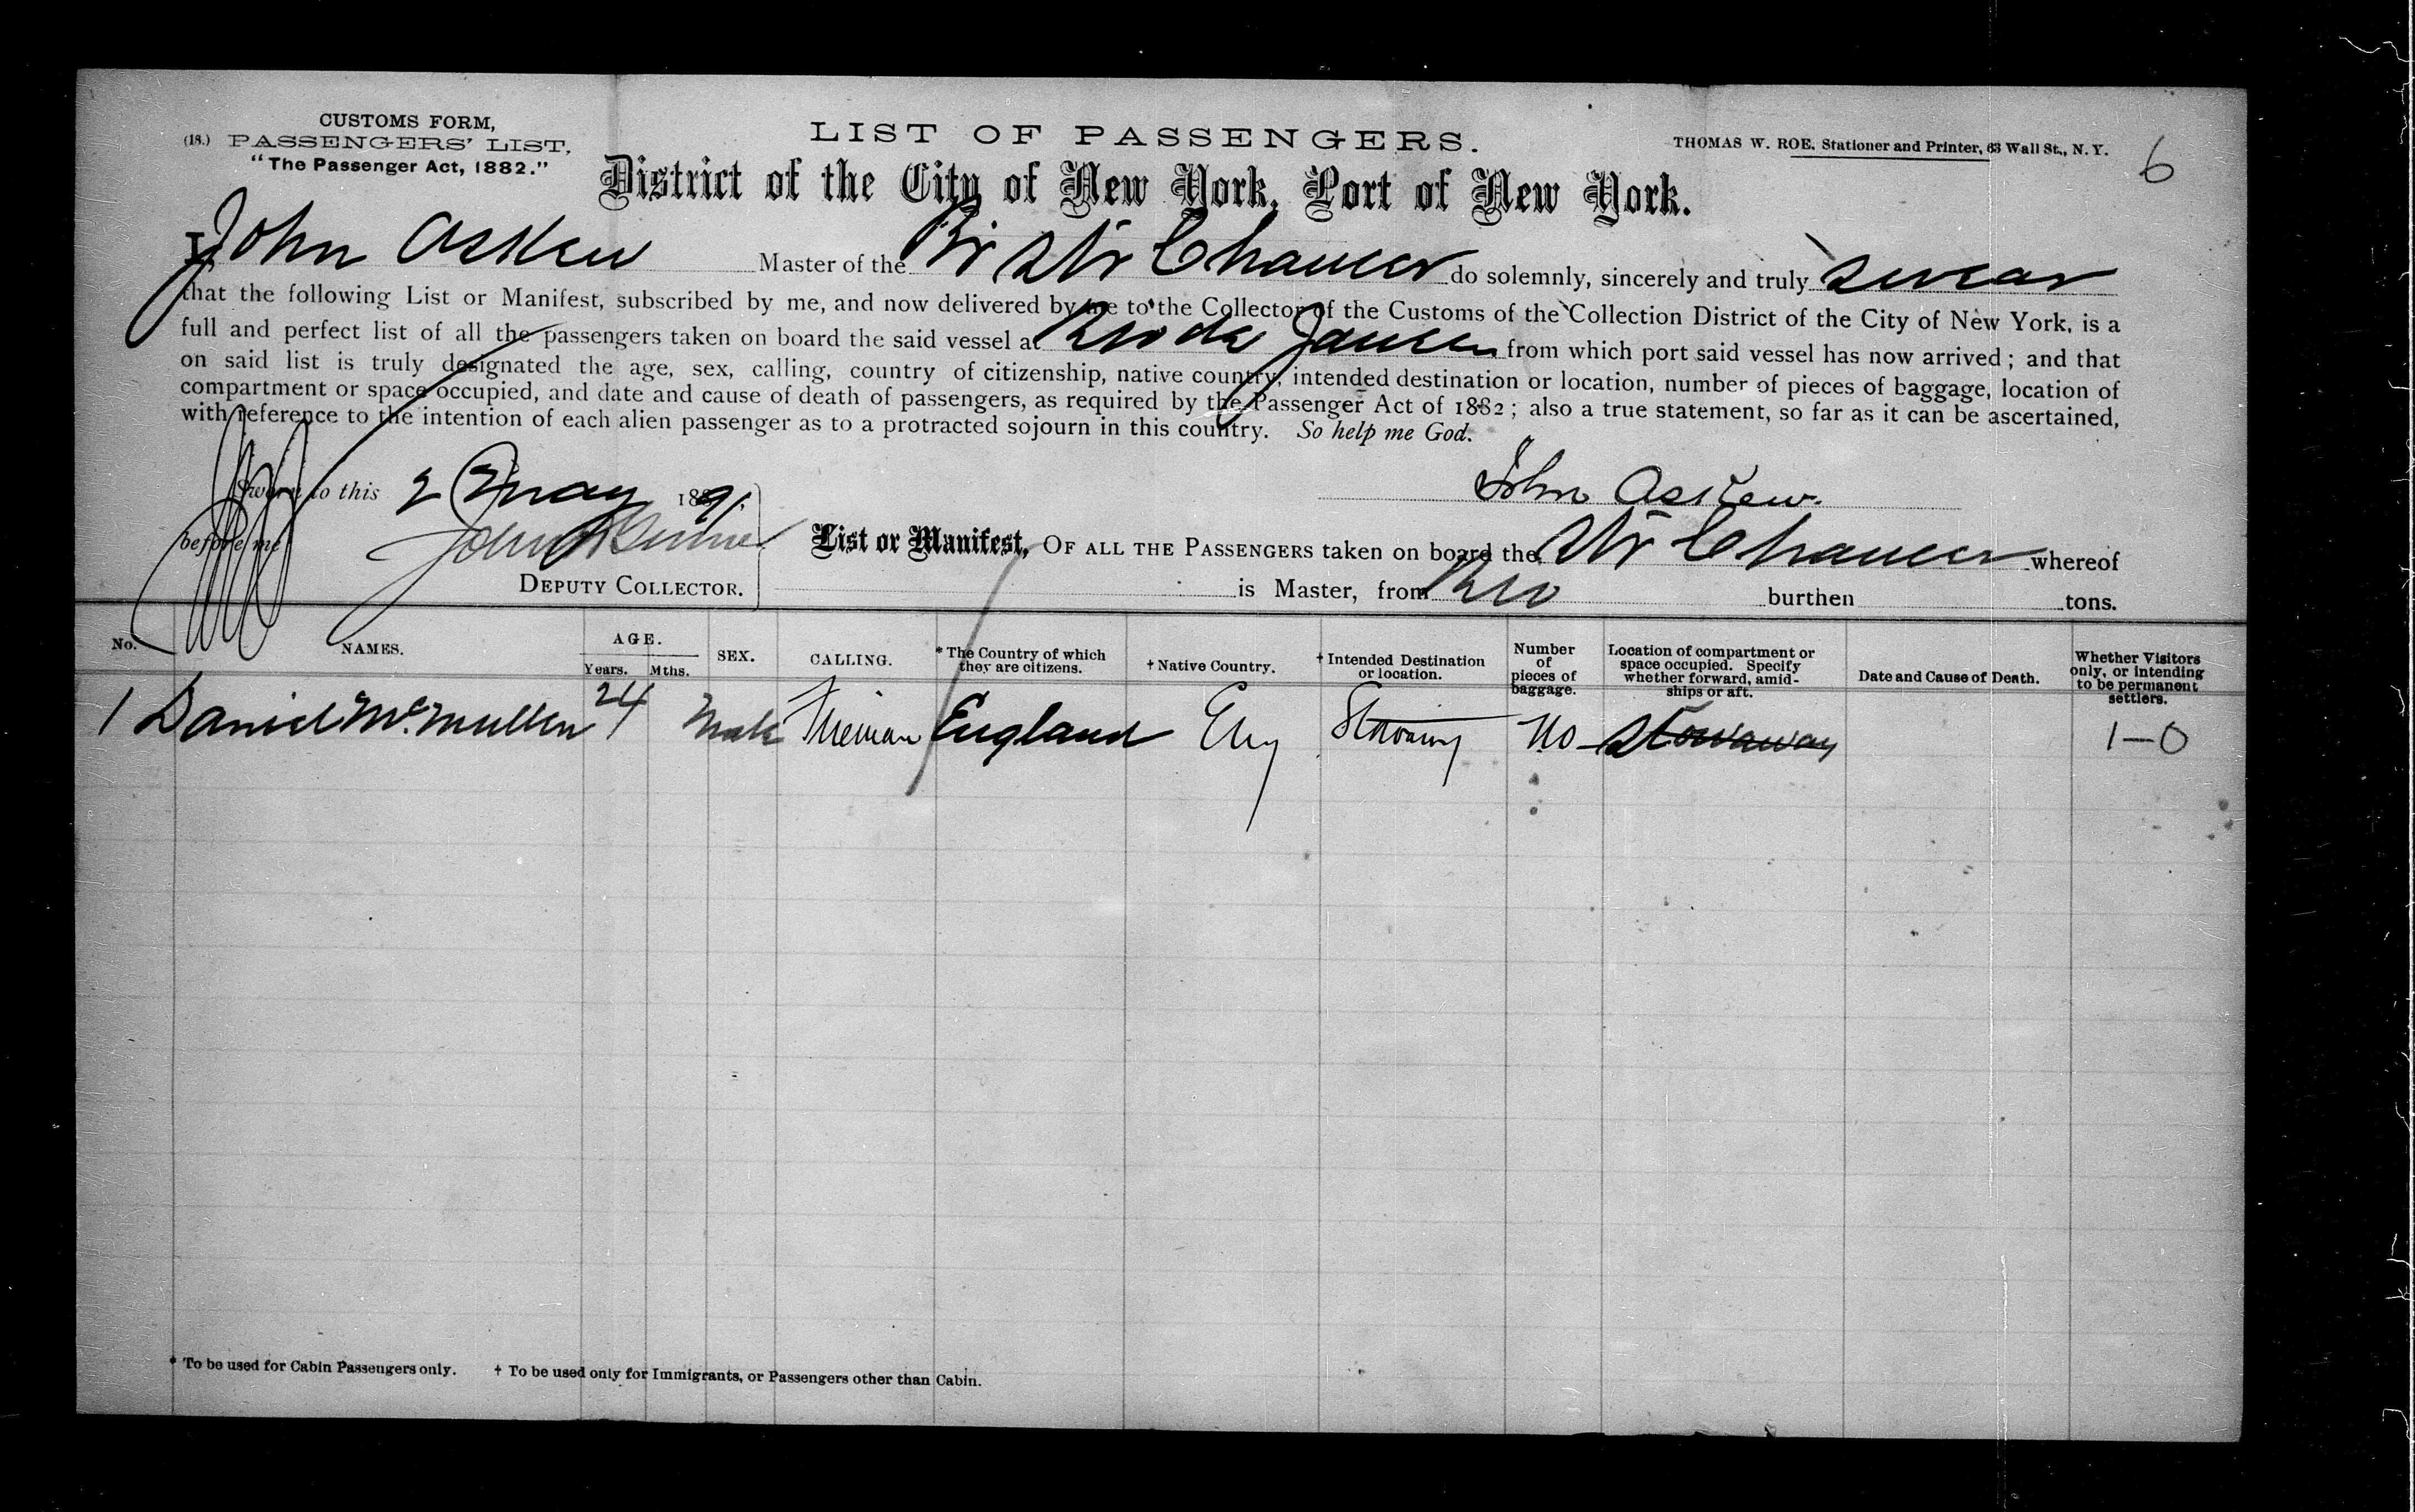 CUSTOMS FORM,
(18.) PASSENGERS' LIST,
"The Passenger Act, 1882."
LIST OF PASSENGERS.
THOMAS W. ROE, Stationer and Printer, 63 Wall St., N. Y.
6
District of the City of New York, Port of New York.
I, John Askew Master of the Br Str Chaucer do solemnly, sincerely and truly swear
that the following List or Manifest, subscribed by me, and now delivered by me to the Collector of the Customs of the Collection District of the City of New York, is a
full and perfect list of all the passengers taken on board the said vessel at Rio de Janeiro from which port said vessel has now arrived; and that
on said list is truly designated the age, sex, calling, country of citizenship, native country, intended destination or location, number of pieces of baggage, location of
compartment or space occupied, and date and cause of death of passengers, as required by the Passenger Act of 1882; also a true statement, so far as it can be ascertained,
with reference to the intention of each alien passenger as to a protracted sojourn in this country. So help me God.
Sworn to this 2 May 1891
John Askew.
before me John
DEPUTY COLLECTOR.
List or Manifest, OF ALL THE PASSENGERS taken on board the Str Chaucer whereof
is Master, from Rio burthen tons.
No. NAMES. AGE. Years. Mths. SEX. CALLING. * The Country of which they are citizens. † Native Country. † Intended Destination or location. Number of pieces of baggage. Location of compartment or space occupied. Specify whether forward, amidships or aft. Date and Cause of Death. Whether Visitors only, or intending to be permanent settlers.
1 Daniel McMullen 24 Male Fireman England Eng No Stowaway 1-0
* To be used for Cabin Passengers only. † To be used only for Immigrants, or Passengers other than Cabin.